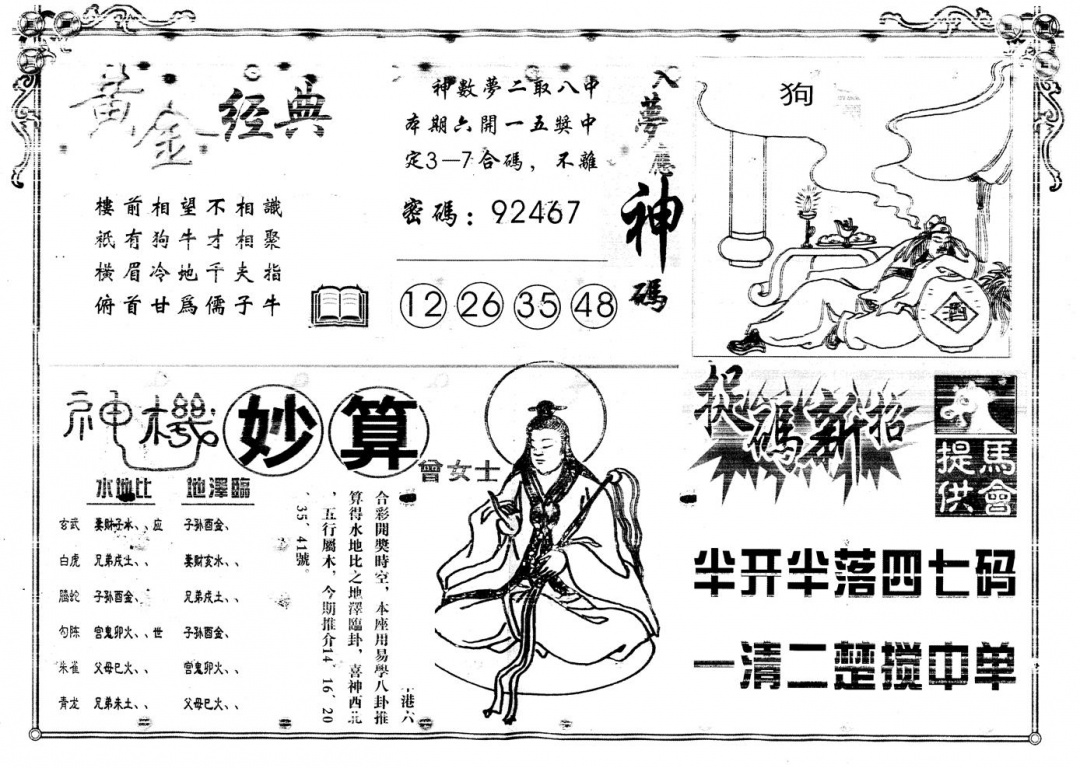 黃金经典
樓前相望不相識
衹有狗牛才相聚
橫眉冷地千夫指
俯首甘爲儒子牛
神數夢二取八中
本期六開一五獎中
定3—7合碼，不離
密碼：92467
12 26 35 48
入夢應神碼
狗
酒
神機妙算
曾女士
水地比 地澤臨
玄武 妻财子水、、应 子孙酉金、
白虎 兄弟戌土、、 妻财亥水、、
螣蛇 子孙酉金、 兄弟戌土、、
勾陈 官鬼卯火、、世 子孙酉金、
朱雀 父母巳火、、 官鬼卯火、、
青龙 兄弟未土、、 父母巳火、、
港六
合彩開獎時空，本座用易學八卦推
算得水地比之地澤臨卦，喜神西北
，五行屬木，今期推介14、16、20
、35、41號。
捉碼新招
馬會提供
半开半落四七码
一清二楚搅中单